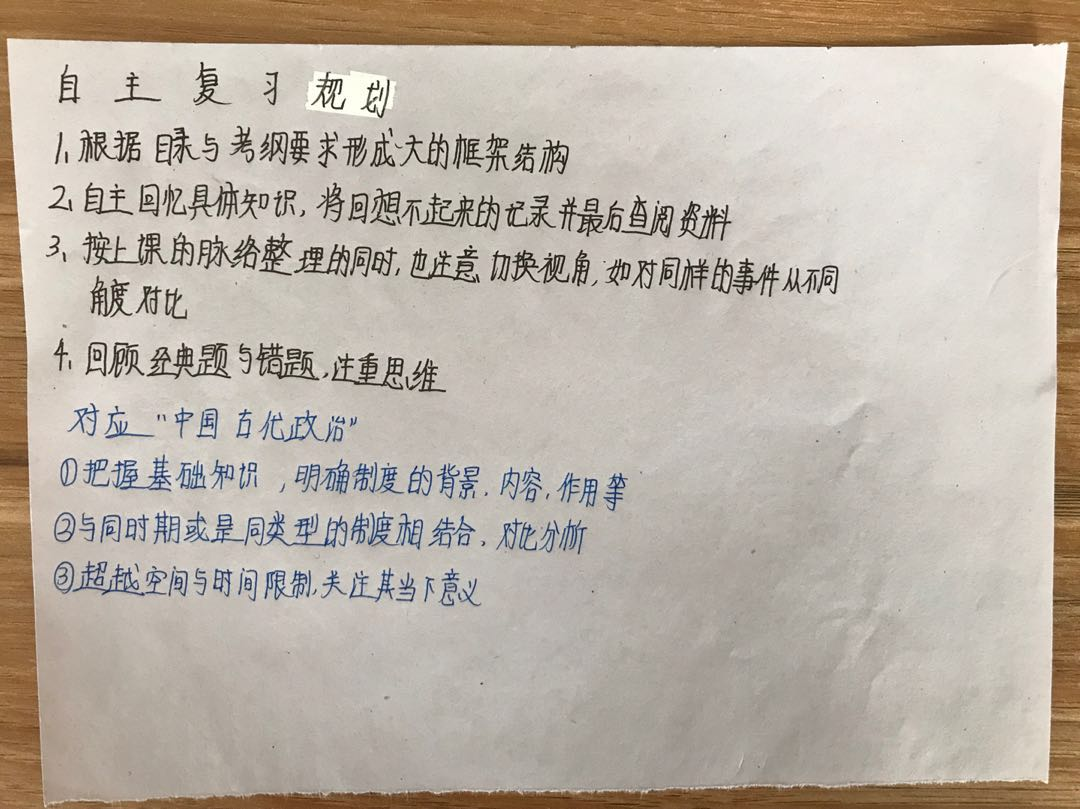 自主复习规划
1、根据目录与考纲要求形成大的框架结构
2、自主回忆具体知识,将回想不起来的记录并最后查阅资料
3、按上课的脉络整理的同时,也注意切换视角,如对同样的事件从不同
角度对比
4、回顾经典题与错题,注重思维
对应“中国古代政治”
①把握基础知识,明确制度的背景、内容、作用等
②与同时期或是同类型的制度相结合、对比分析
③超越空间与时间限制,关注其当下意义